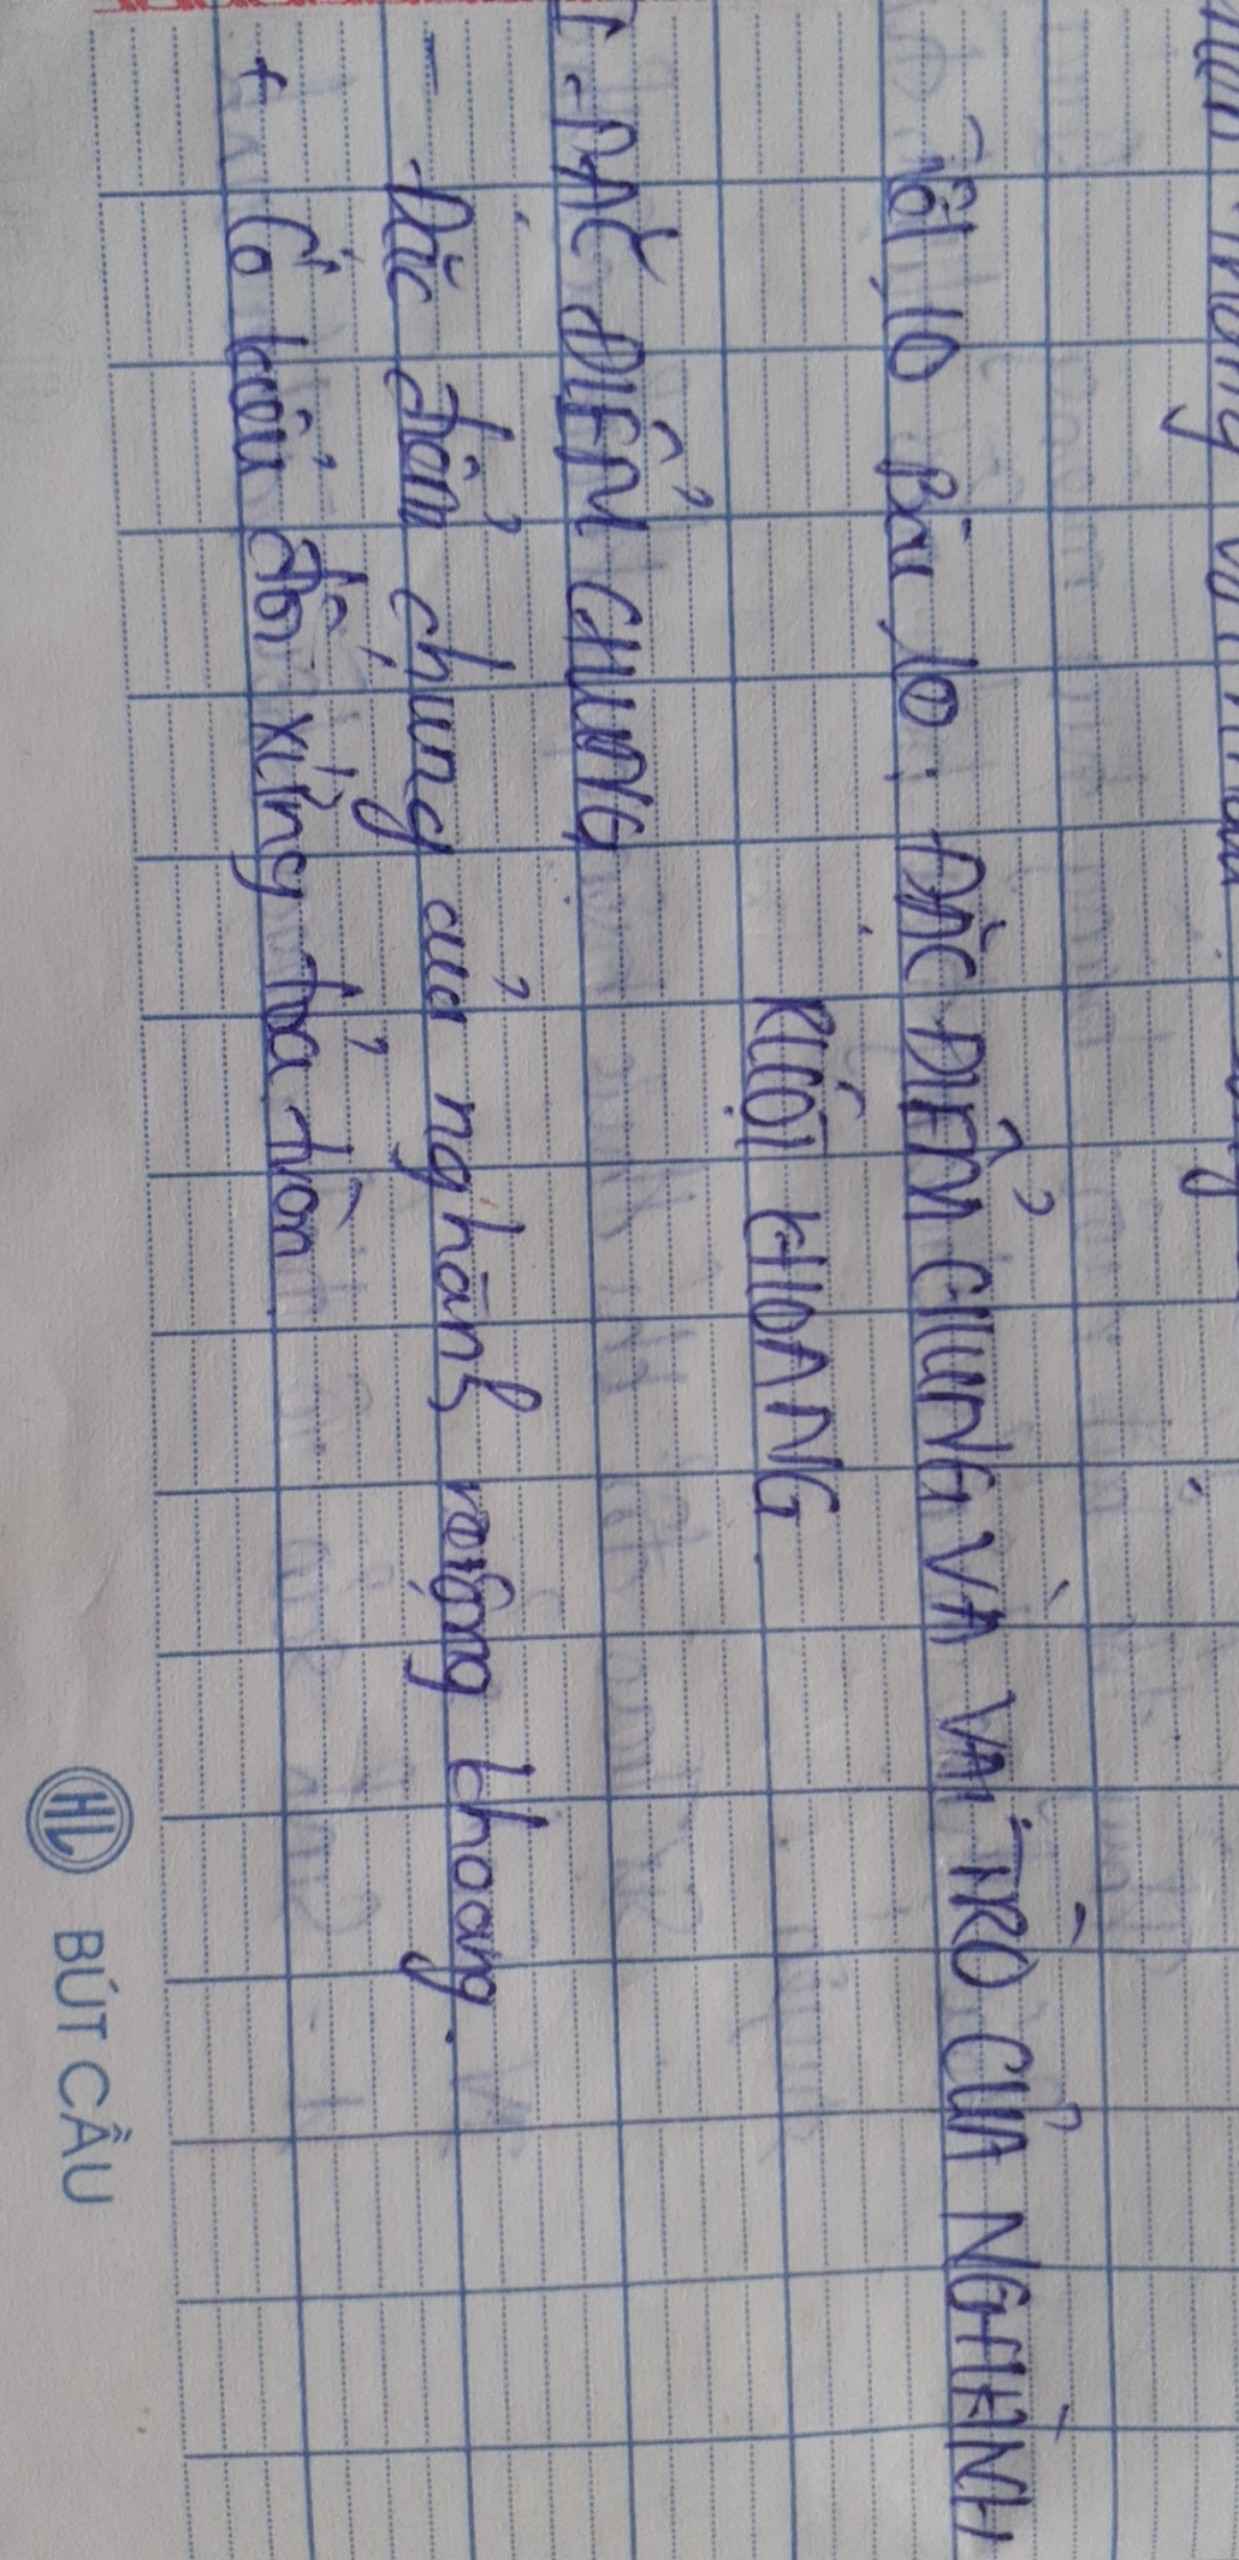 Tiết 10 Bài 10: ĐẶC ĐIỂM CHUNG VÀ VAI TRÒ CỦA NGHÀNH
RUỘT KHOANG.
I. ĐẶC ĐIỂM CHUNG
- Đặc điểm chung của nghành ruột khoang.
+ Có kiểu đối xứng tỏa tròn
HL BÚT CÂU